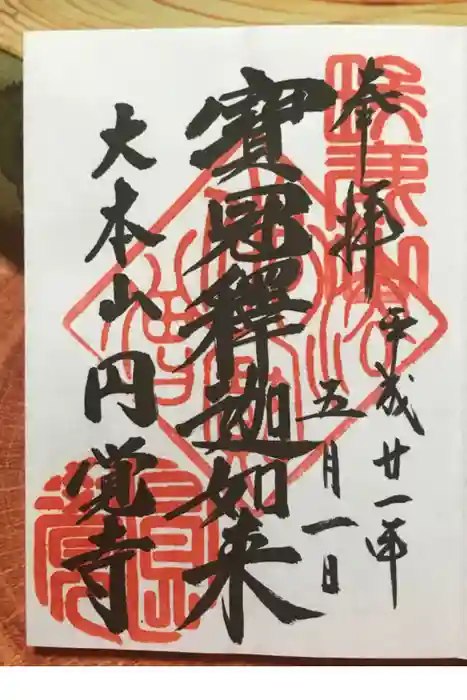 奉拝
平成廿一年
五月一日
寶冠釋迦如来
大本山円覚寺